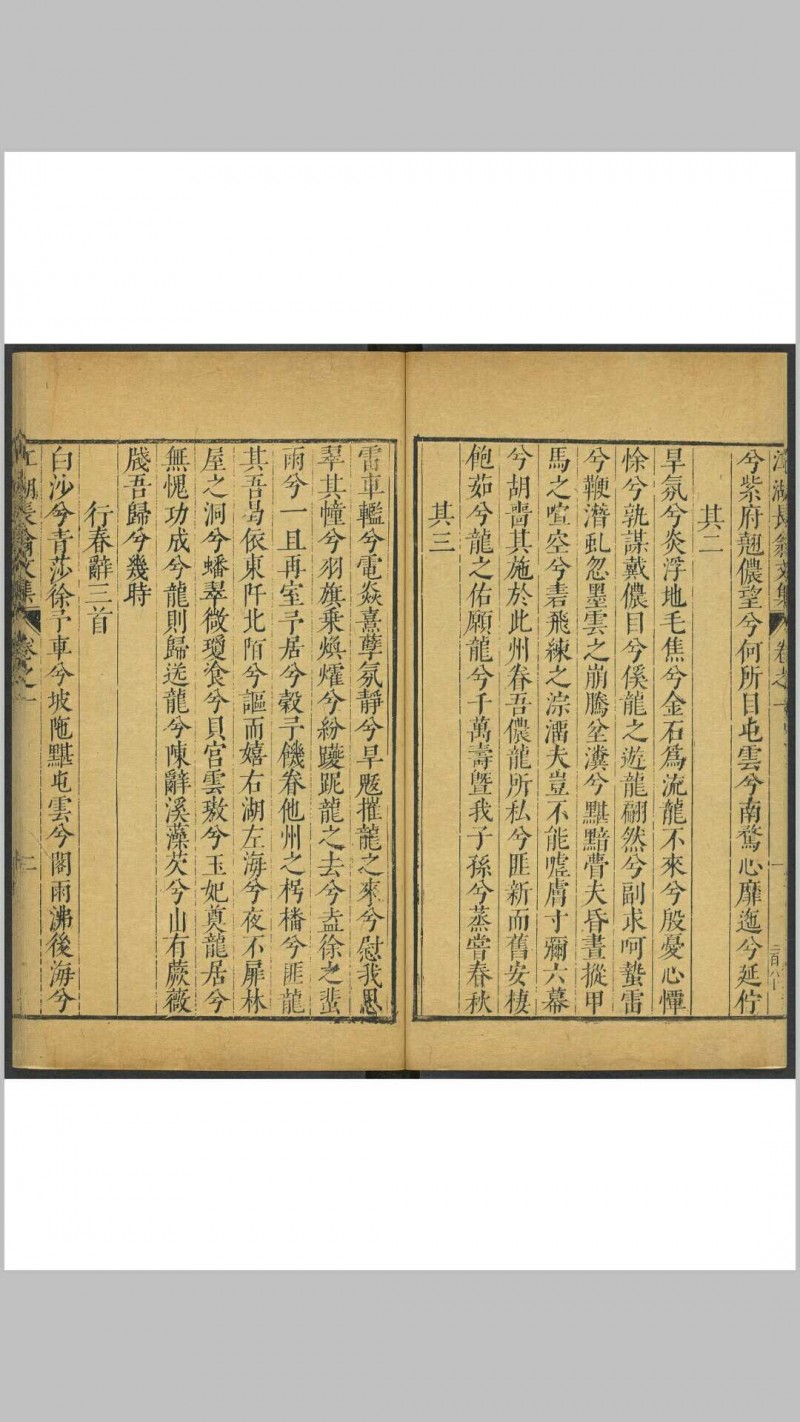 江湖長翁文集 卷之一
兮紫府翹儂望兮何所目屯雲兮南騖心靡迤兮延佇
其二
旱氛兮炎浮地毛焦兮金石爲流龍不來兮殷憂心憚
悇兮孰謀戴儂目兮傒龍之遊龍翩然兮副求呵蟄雷
兮鞭潛虬忽墨雲之崩騰坌瀵兮黮黯瞢夫昏晝摐甲
馬之喧空兮砉飛練之淙㵎夫豈不能噓膚寸彌六幕
兮胡嗇其施於此州眷吾儂龍所私兮匪新而舊安棲
飽茹兮龍之佑願龍兮千萬壽曁我子孫兮蒸嘗春秋
其三
雷車轞兮電焱熹孽氛靜兮旱魃摧龍之來兮慰我思
翠其幢兮羽旗乘煥爚兮紛躨跜龍之去兮盍徐之蜚
雨兮一且再室予居兮穀予饑眷他州之枵橎兮匪龍
其吾曷依東阡北陌兮謳而嬉右湖左海兮夜不扉林
屋之洞兮蟠翠微瓊飡兮貝宮雲璈兮玉妃奠龍居兮
無愧功成兮龍則歸送龍兮陳辭溪藻芡兮山有蕨薇
牋吾歸兮幾時
行春辭三首
白沙兮青莎徐予車兮坡陁黮屯雲兮閣雨沸後海兮
江湖長翁文集 卷之一 二